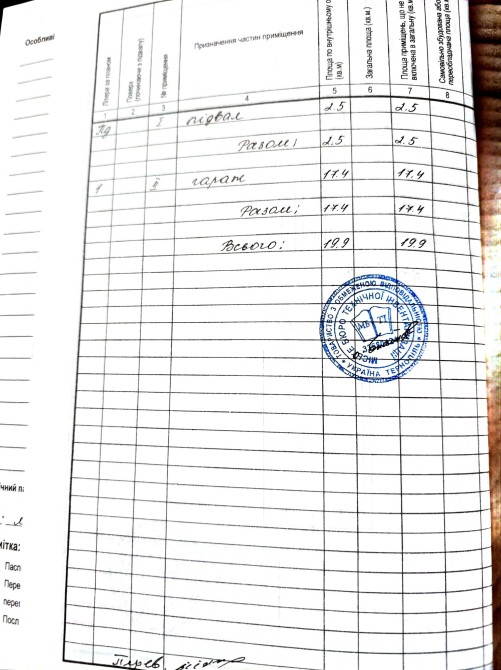 Особливі
Літера за планом
Поверх (починаючи з підвалу)
№ приміщення
Призначення частин приміщення
Площа по внутрішньому о
(кв.м)
Загальна площа (кв.м.)
Площа приміщень, що не
включена в загальну (кв.м
Самовільно збудована або
переобладнана площа (кв.м
1 2 3 4 5 6 7 8
Пд I підвал 2.5 2.5
Разом: 2.5 2.5
1 II гараж 17.4 17.4
Разом: 17.4 17.4
Всього: 19.9 19.9
ТОВАРИСТВО З ОБМЕЖЕНОЮ ВІДПОВІДАЛЬНІСТЮ
МІСЬКЕ БЮРО ТЕХНІЧНОЇ ІНВЕНТАРИЗАЦІЇ
УКРАЇНА ТЕРНОПІЛЬ
ічний па
мітка:
Пасп
Пере
перег
Посл